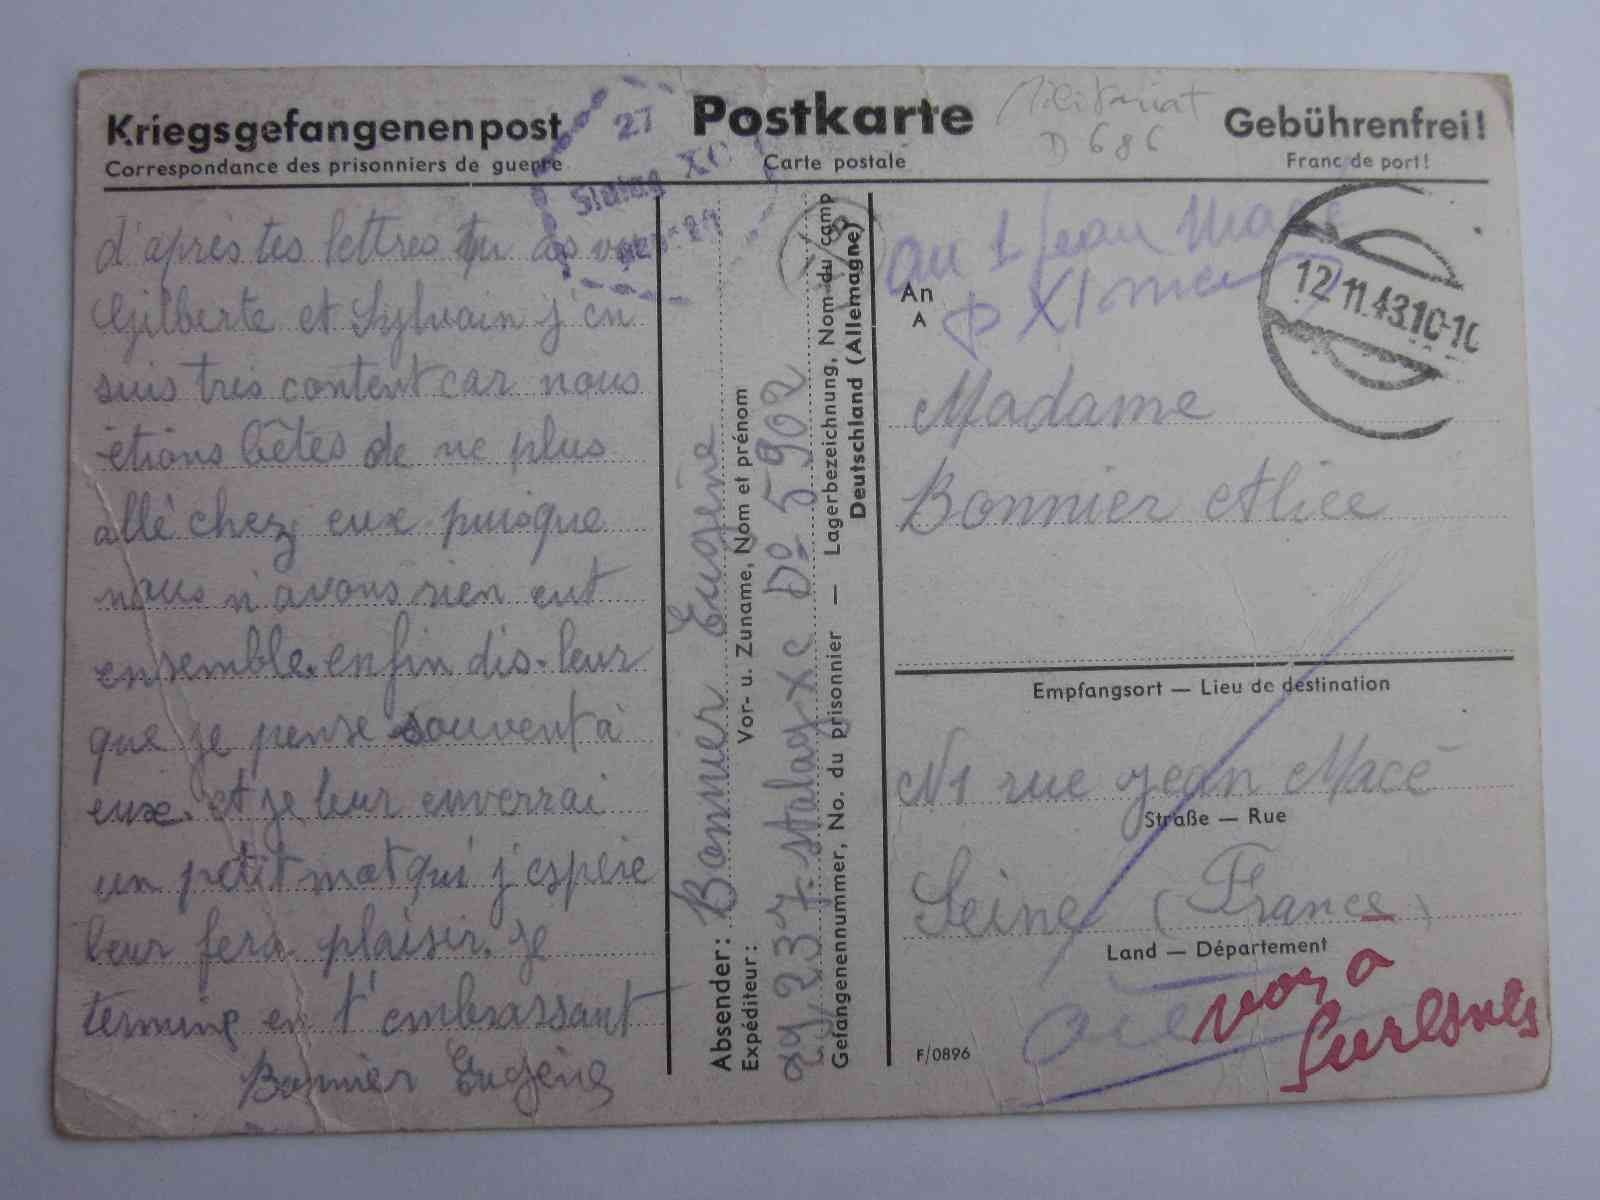 Kriegsgefangenenpost
Correspondance des prisonniers de guerre
Postkarte
Carte postale
Gebührenfrei!
Franc de port!
D 686
27
Stalag XC
d'après tes lettres tu as vu
Gilberte et Sylvain j'en
suis très content car nous
étions bêtes de ne plus
allé chez eux puisque
nous n'avons rien eut
ensemble. enfin dis-leur
que je pense souvent à
eux. et je leur enverrai
un petit mot qui j'espère
leur fera plaisir. je
termine en t'embrassant
Bonnier Eugène
Absender: Bonnier Eugène
Expéditeur:
Vor- u. Zuname, Nom et prénom
29.237. stalag xc Dº 5902
Gefangenennummer, No. du prisonnier — Lagerbezeichnung, Nom du camp
Deutschland (Allemagne)
au 1 Jean Macé
An
A
12.11.43.10-10
Madame
Bonnier Alice
Empfangsort — Lieu de destination
N1 rue jean Macé
Straße — Rue
Seine (France)
Land — Département
voir à
Suresnes
F/0896